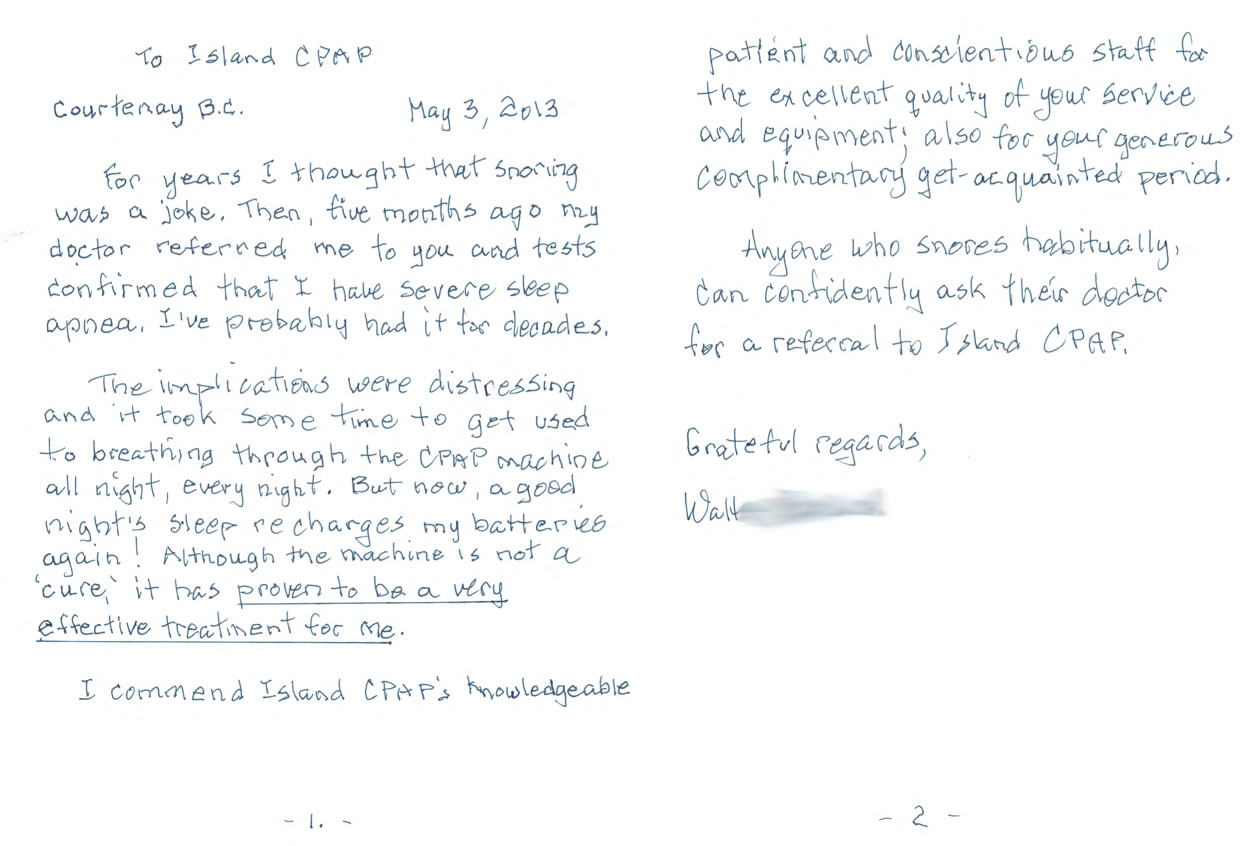 To Island CPAP
Courtenay B.C. May 3, 2013
For years I thought that snoring
was a joke. Then, five months ago my
doctor referred me to you and tests
confirmed that I have severe sleep
apnea. I've probably had it for decades.
The implications were distressing
and it took some time to get used
to breathing through the CPAP machine
all night, every night. But now, a good
night's sleep recharges my batteries
again! Although the machine is not a
'cure,' it has proven to be a very
effective treatment for me.
I commend Island CPAP's knowledgeable
- 1. -
patient and conscientious staff for
the excellent quality of your service
and equipment; also for your generous
complimentary get-acquainted period.
Anyone who snores habitually,
can confidently ask their doctor
for a referral to Island CPAP.
Grateful regards,
Walt
- 2 -